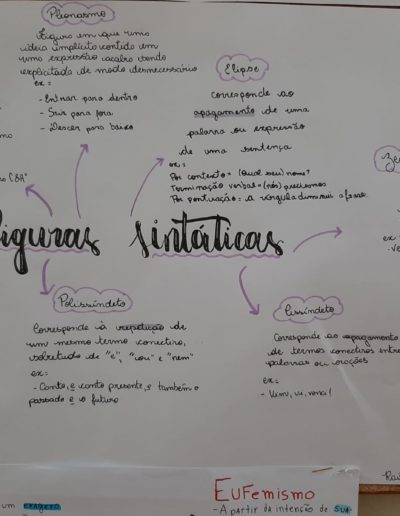 Pleonasmo
Figura em que uma
ideia implícita contida em
uma expressão acaba sendo
explicitada de modo desnecessário
ex:
- Entrar para dentro
- Sair para fora
- Descer para baixo
Elipse
Corresponde ao
apagamento de uma
palavra ou expressão
de uma sentença
ex:
Por contexto = (Qual seu) nome?
Terminação verbal = (nós) precisamos
Por pontuação = a vírgula diminui a frase
Figuras Sintáticas
ex =
Polissíndeto
Corresponde à repetição de
um mesmo termo conectivo,
sobretudo de "e", "ou" e "nem"
ex:
- Canto, e canto presente, e também o
passado e o futuro
Assíndeto
Corresponde ao apagamento
de termos conectivos entre
palavras ou orações
ex:
- Vim, vi, venci!
um exagero
EuFemismo
- A partir da intenção de sua